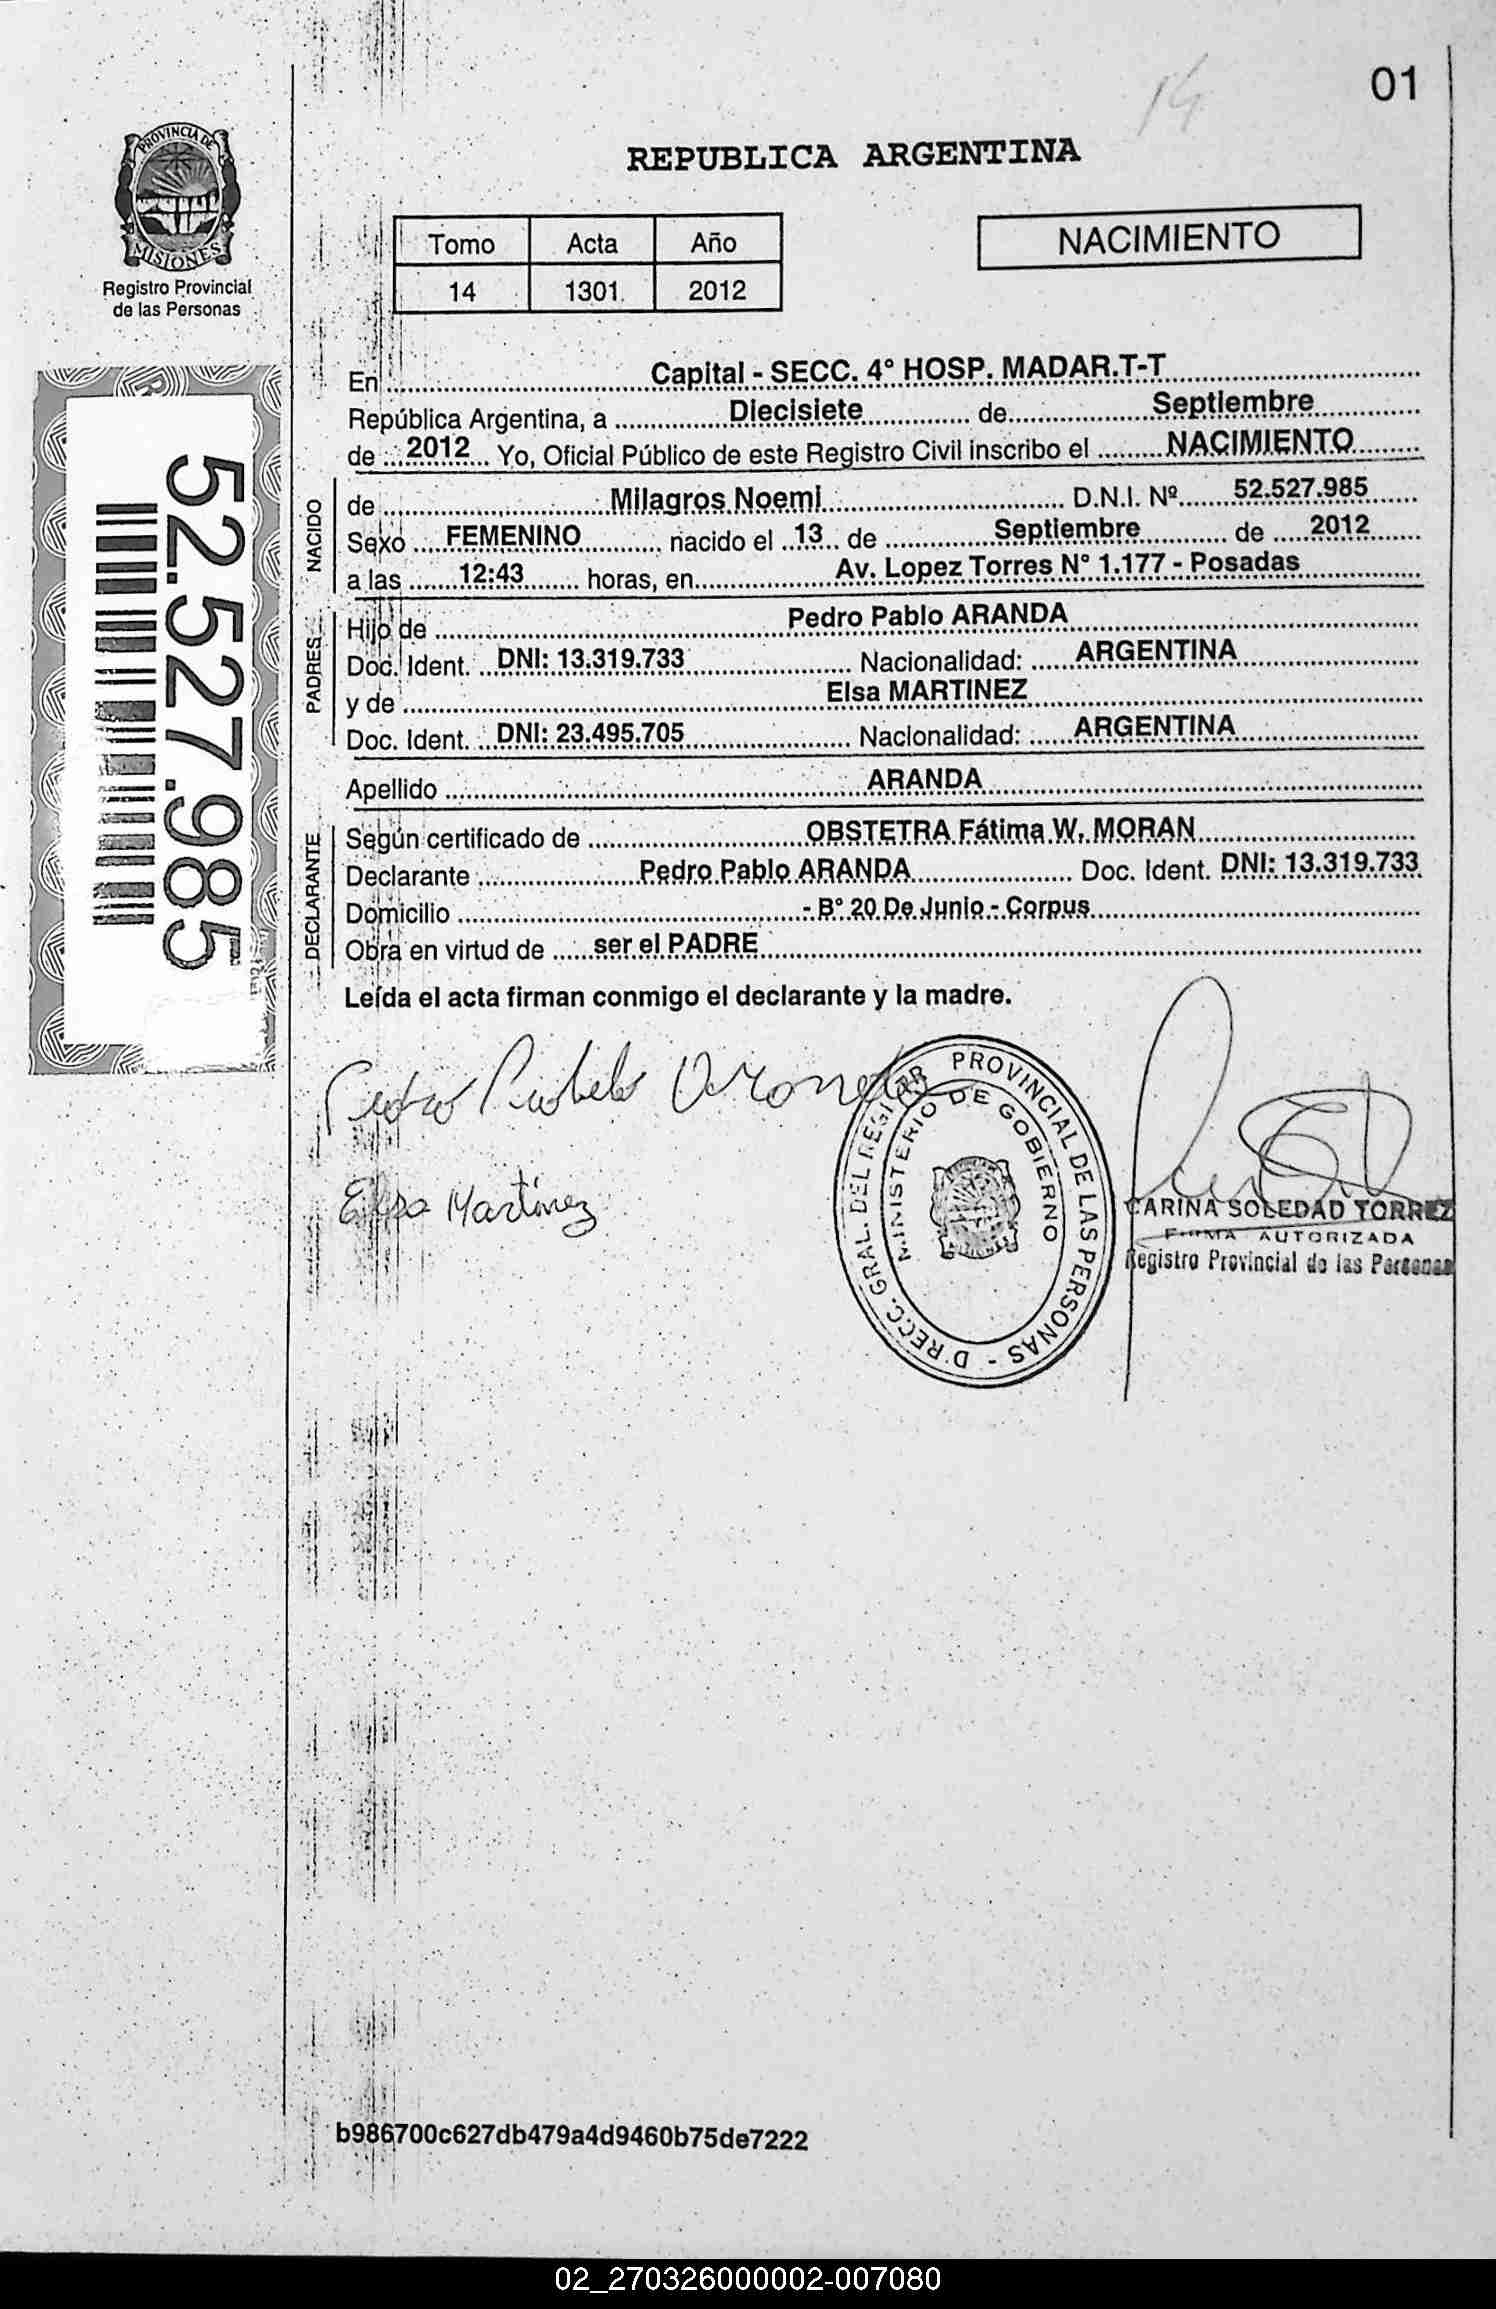 01
14
REPUBLICA ARGENTINA
PROVINCIA DE
MISIONES
Registro Provincial
de las Personas
Tomo Acta Año
14 1301 2012
NACIMIENTO
52.527.985
En Capital - SECC. 4° HOSP. MADAR.T-T
República Argentina, a Diecisiete de Septiembre
de 2012 Yo, Oficial Público de este Registro Civil inscribo el NACIMIENTO
NACIDO
de Milagros Noemi D.N.I. Nº 52.527.985
Sexo FEMENINO nacido el 13 de Septiembre de 2012
a las 12:43 horas, en Av. Lopez Torres N° 1.177 - Posadas
PADRES
Hijo de Pedro Pablo ARANDA
Doc. Ident. DNI: 13.319.733 Nacionalidad: ARGENTINA
y de Elsa MARTINEZ
Doc. Ident. DNI: 23.495.705 Nacionalidad: ARGENTINA
Apellido ARANDA
DECLARANTE
Según certificado de OBSTETRA Fátima W. MORAN
Declarante Pedro Pablo ARANDA Doc. Ident. DNI: 13.319.733
Domicilio - B° 20 De Junio - Corpus
Obra en virtud de ser el PADRE
Leída el acta firman conmigo el declarante y la madre.
Pedro Pablo Aranda
Elsa Martinez
D RECC. GRAL. DEL REGISTR PROVINCIAL DE LAS PERSONAS -
MINISTERIO DE GOBIERNO
CARINA SOLEDAD TORREZ
FIRMA AUTORIZADA
Registro Provincial de las Personas
b986700c627db479a4d9460b75de7222
02_270326000002-007080